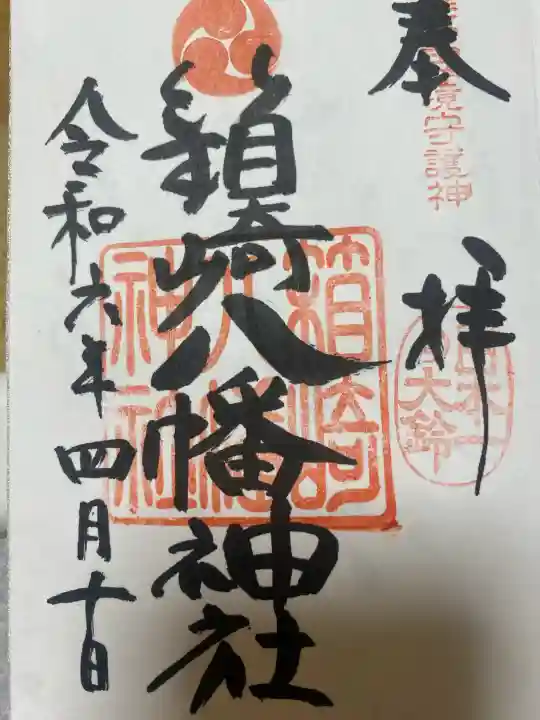 奉拝
境守護神
日本一
大鈴
箱崎八幡神社
箱崎八幡神社
令和六年四月十日